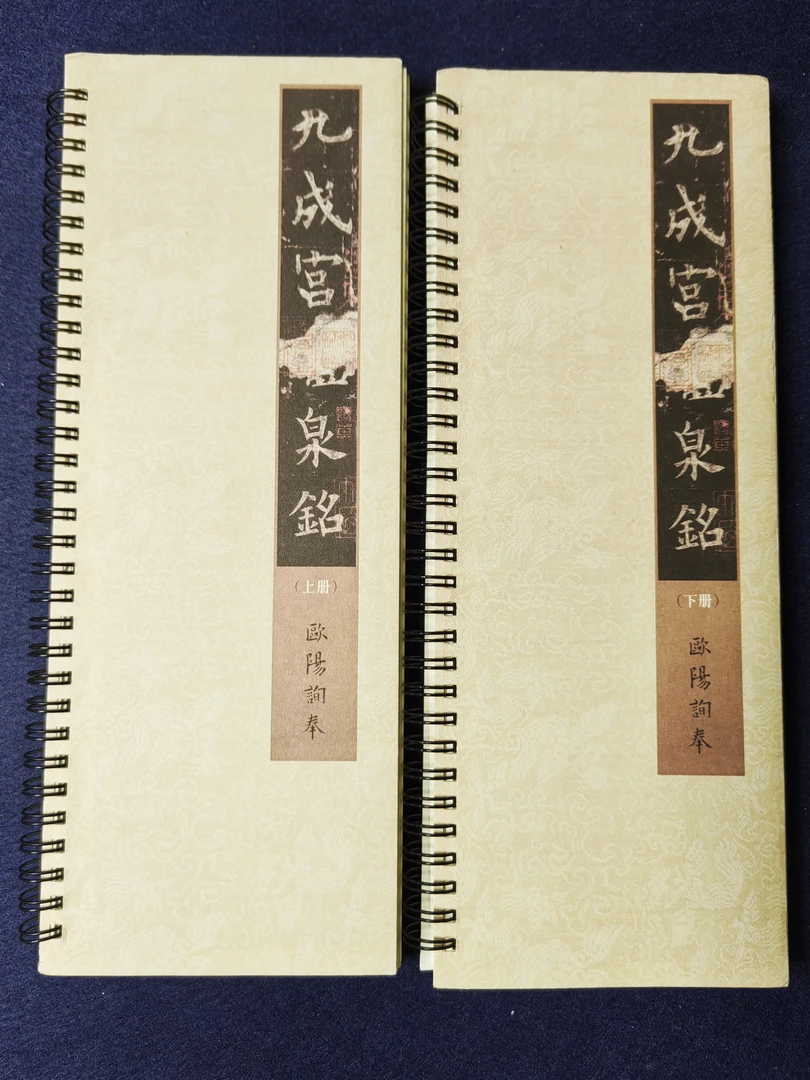 九成宮泉銘
（上册）
歐陽詢奉
九成宮泉銘
（下册）
歐陽詢奉